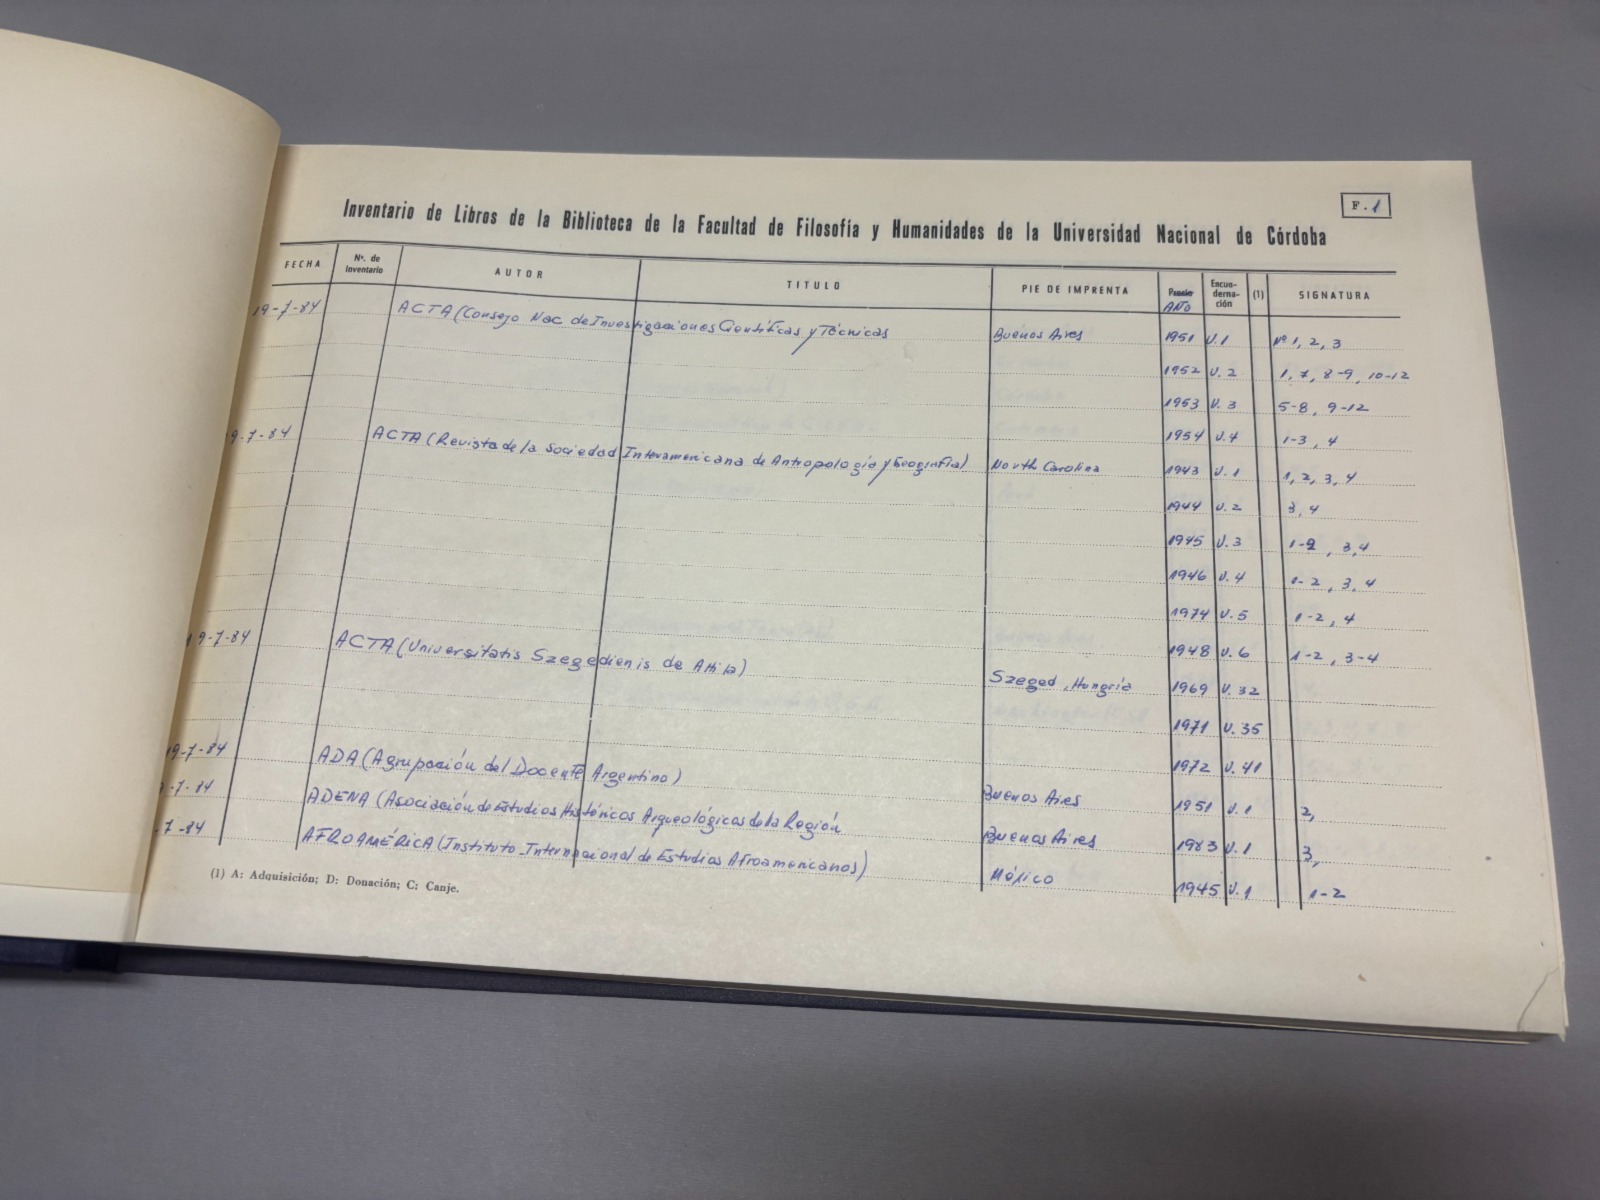 F. 1
Inventario de Libros de la Biblioteca de la Facultad de Filosofía y Humanidades de la Universidad Nacional de Córdoba
FECHA Nº. de Inventario AUTOR TITULO PIE DE IMPRENTA Precio AÑO Encua-derna-ción (1) SIGNATURA
19-7-84 ACTA (Consejo Nac. de Investigaciones Científicas y Técnicas Buenos Aires 1951 V.1 Nº 1, 2, 3
1952 V.2 1, 7, 8-9, 10-12
1953 V.3 5-8, 9-12
1954 V.4 1-3, 4
9-7-84 ACTA (Revista de la Sociedad Interamericana de Antropología y Geografía) North Carolina 1943 V.1 1, 2, 3, 4
1944 V.2 3, 4
1945 V.3 1-2, 3, 4
1946 V.4 1-2, 3, 4
1974 V.5 1-2, 4
1948 V.6 1-2, 3-4
19-7-84 ACTA (Universitatis Szegedienis de Attila) Szeged, Hungría 1969 V.32
1971 V.35
1972 V.41
19-7-84 ADA (Agrupación del Docente Argentino) Buenos Aires 1951 V.1 2,
-7-84 ADENA (Asociación de Estudios Históricos Arqueológicos de la Región Buenos Aires 1983 V.1 3,
7-84 AFROAMÉRICA (Instituto Internacional de Estudios Afroamericanos) México 1945 V.1 1-2
(1) A: Adquisición; D: Donación; C: Canje.